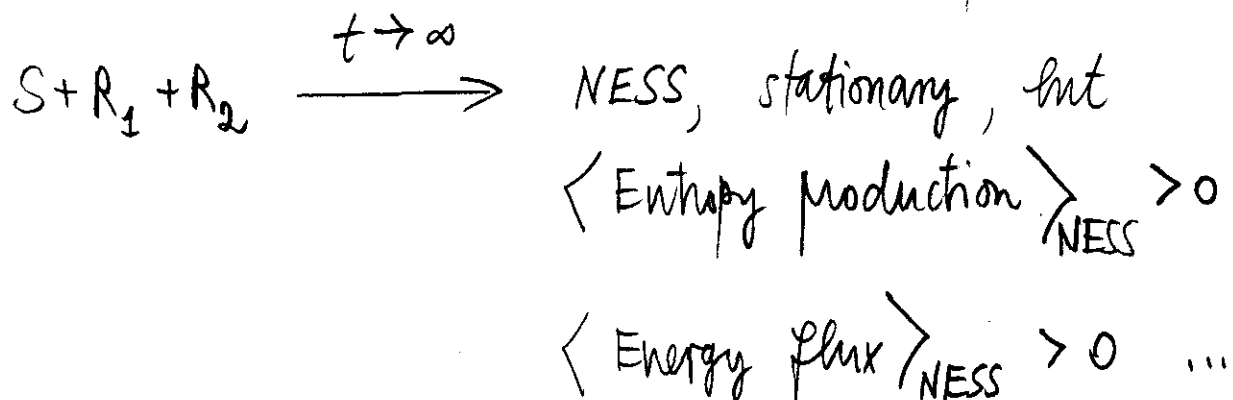 t → ∞
S + R₁ + R₂ ⟶ NESS, stationary, but
⟨ Entropy production ⟩_NESS > 0
⟨ Energy flux ⟩_NESS > 0 ...